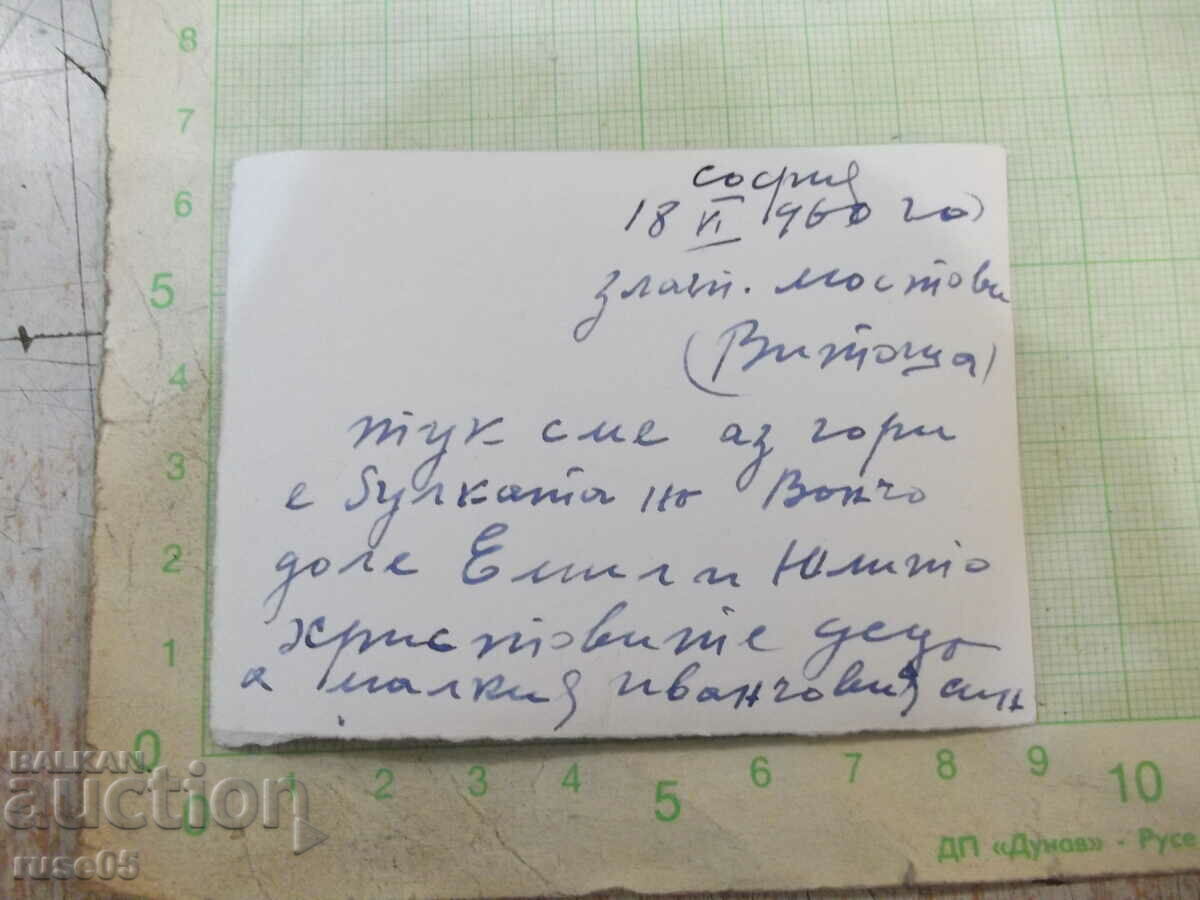 София
18 VI 1960 го)
злат. мостови
(Витоша)
тук сме аз гори
е булката на Вончо
доле Емил и Юлито
христовите деца
а малкия иванчовия син
8
7
6
5
4
3
2
1
0
0 1 2 3 4 5 6 7 8 9 10
ДП «Дунав» - Русе
BALKAN
auction
ruse05